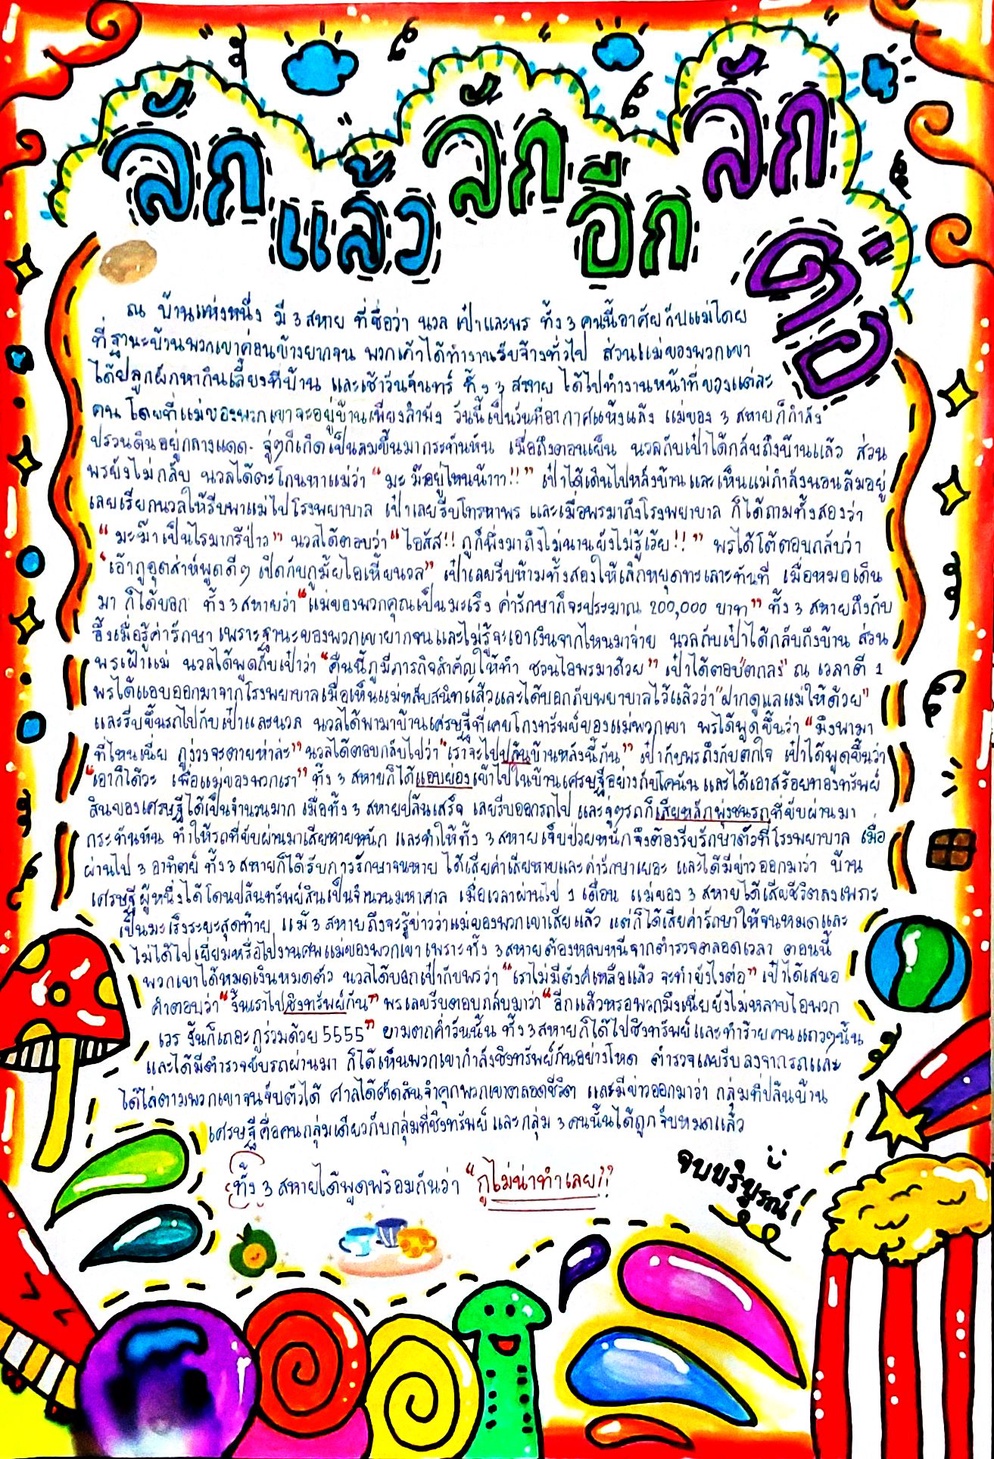 ลัก
แล้ว
ลัก
อีก
ลัก
ดื้อ
ณ บ้านแห่งหนึ่ง มี 3 สหาย ที่ชื่อว่า นวล เป๋าและพร ทั้ง 3 คนนี้อาศัยกับแม่โดย
ที่ฐานะบ้านพวกเขาค่อนข้างยากจน พวกเค้าได้ทำงานรับจ้างทั่วไป ส่วนแม่ของพวกเขา
ได้ปลูกผักหากินเลี้ยงที่บ้าน และเช้าวันจันทร์ ทั้ง 3 สหาย ได้ไปทำงานหน้าที่ของแต่ละ
คน โดยที่แม่ของพวกเขาจะอยู่บ้านเพียงลำพัง วันนี้เป็นวันที่อากาศแห้งแล้ง แม่ของ 3 สหายก็กำลัง
ปรวนดินอยู่กลางแดด จู่ๆก็เกิดเป็นลมขึ้นมากระทันหัน เมื่อถึงตอนเย็น นวลกับเป๋าได้กลับถึงบ้านแล้ว ส่วน
พรยังไม่กลับ นวลได้ตะโกนหาแม่ว่า “มะ ม๊อยู่ไหนน้าาา!!” เป๋าได้เดินไปหลังบ้านและเห็นแม่กำลังนอนล้มอยู่
เลยเรียกนวลให้รีบพาแม่ไปโรงพยาบาล เป๋าเลยรีบโทรหาพร และเมื่อพรมาถึงโรงพยาบาล ก็ได้ถามทั้งสองว่า
“มะม๊าเป็นไรมากรึป่าว” นวลได้ตอบว่า “ไอสัส!! กูก็พึ่งมาถึงไม่นานยังไม่รู้เว้ย!!” พรได้โต้ตอบกลับว่า
“เอ้ากูอุตส่าห์พูดดีๆ เป็ดกับกูมั้ยไอเหี้ยนวล” เป๋าเลยรีบห้ามทั้งสองให้เลิกหยุดทะเลาะทันที เมื่อหมอเดิน
มา ก็ได้บอก ทั้ง 3 สหายว่า “แม่ของพวกคุณเป็นมะเร็ง ค่ารักษาก็จะประมาณ 200,000 บาท” ทั้ง 3 สหายถึงกับ
อึ้งเมื่อรู้ค่ารักษา เพราะฐานะของพวกเขายากจนและไม่รู้จะเอาเงินจากไหนมาจ่าย นวลกับเป๋าได้กลับถึงบ้าน ส่วน
พรเฝ้าแม่ นวลได้พูดกับเป๋าว่า “คืนนี้กูมีภารกิจสำคัญให้ทำ ชวนไอพรมาด้วย” เป๋าได้ตอบ“ตกลง” ณ เวลาตี 1
พรได้แอบออกมาจากโรงพยาบาลเมื่อเห็นแม่หลับสนิทแล้วและได้บอกกับพยาบาลไว้แล้วว่า“ฝากดูแลแม่ให้ด้วย”
และรีบขึ้นรถไปกับเป๋าและนวล นวลได้พามาบ้านเศรษฐีที่เคยโกงทรัพย์ของแม่พวกเขา พรได้พูดขึ้นว่า “มึงพามา
ที่ไหนเนี่ย กูง่วงจะตายห่าละ” นวลได้ตอบกลับไปว่า “เราจะไปปล้นบ้านหลังนี้กัน” เป๋ากับพรถึงกับตกใจ เป๋าได้พูดขึ้นว่า
“เอาก็ได้วะ เพื่อแม่ของพวกเรา” ทั้ง 3 สหายก็ได้แอบย่องเข้าไปในบ้านเศรษฐีอย่างกับโคนัน และได้เอาสร้อยทองทรัพย์
สินของเศรษฐีได้เป็นจำนวนมาก เมื่อทั้ง 3 สหายปล้นเสร็จ เลยรีบออกรถไป และจู่ๆรถก็เสียหลักพุ่งชนรถที่ขับผ่านมา
กระทันหัน ทำให้รถที่ขับผ่านมาเสียหายหนัก และทำให้ทั้ง 3 สหายเจ็บป่วยหนักจึงต้องรีบรักษาตัวที่โรงพยาบาล เมื่อ
ผ่านไป 3 อาทิตย์ ทั้ง 3 สหายก็ได้รับการรักษาจนหาย ได้เสียค่าเสียหายและค่ารักษาเยอะ และได้มีข่าวออกมาว่า บ้าน
เศรษฐีผู้หนึ่งได้โดนปล้นทรัพย์สินเป็นจำนวนมหาศาล เมื่อเวลาผ่านไป 1 เดือน แม่ของ 3 สหายได้เสียชีวิตลงเพราะ
เป็นมะเร็งระยะสุดท้าย แม้ 3 สหายถึงจะรู้ข่าวว่าแม่ของพวกเขาเสียแล้ว แต่ก็ได้เสียค่ารักษาให้จนหมดและ
ไม่ได้ไปเยี่ยมหรือไปงานศพแม่ของพวกเขา เพราะทั้ง 3 สหายต้องหลบหนีจากตำรวจตลอดเวลา ตอนนี้
พวกเขาได้หมดเงินหมดตัว นวลได้บอกเป๋ากับพรว่า “เราไม่มีตังค์เหลือแล้ว จะทำยังไงต่อ” เป๋าได้เสนอ
คำตอบว่า “งั้นเราไปชิงทรัพย์กัน” พรเลยรีบตอบกลับมาว่า “อีกแล้วหรอพวกมึงเนี่ยยังไม่หลาบไอพวก
เวร งั้นก็เถอะกูร่วมด้วย 5555” ยามตกค่ำวันนั้น ทั้ง 3 สหายก็ได้ไปชิงทรัพย์ และทำร้ายคนแถวๆนั้น
และได้มีตำรวจขับรถผ่านมา ก็ได้เห็นพวกเขากำลังชิงทรัพย์กันอย่างโหด ตำรวจเลยรีบลงจากรถและ
ได้ไล่ตามพวกเขาจนจับตัวได้ ศาลได้ตัดสินจำคุกพวกเขาตลอดชีวิต และมีข่าวออกมาว่า กลุ่มที่ปล้นบ้าน
เศรษฐีคือคนกลุ่มเดียวกับกลุ่มที่ชิงทรัพย์ และกลุ่ม 3 คนนั้นได้ถูกจับหมดแล้ว
ทั้ง 3 สหายได้พูดพร้อมกันว่า “กูไม่น่าทำเลย!!”
จบบริบูรณ์!